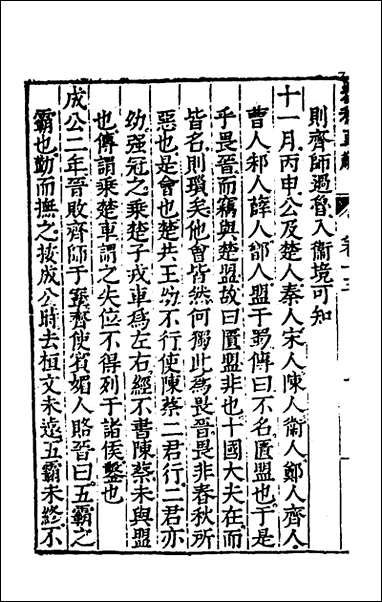 則齊師過魯入衞境可知
十一月丙申公及楚人秦人宋人陳人衞人鄭人齊人
曹人邾人薛人鄫人盟于蜀傳曰不名匱盟也于是
乎畏晉而竊與楚盟故曰匱盟非也十國大夫在而
皆名則瑣矣他會皆然何獨此為畏晉畏非春秋所
惡也是會也楚共王㓜不行使陳蔡二君行二君亦
㓜强冠之乘楚子戎車為左右經不書陳蔡未與盟
也傳謂乘楚車謂之失位不得列于諸侯鑿也
成公二年晉敗齊師于鞌齊使賓媚人賂晉曰五霸之
霸也勤而撫之按成公時去桓文未遠五霸未終不